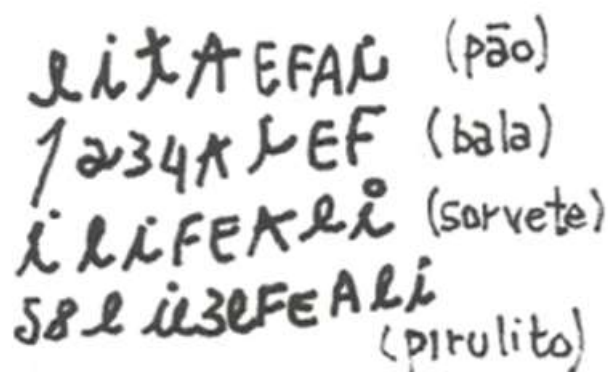 litAEFAi (pão)
1234ArEF (bala)
iliFEAli (sorvete)
58lil3lFEAli
(pirulito)